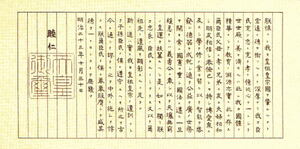 朕惟フニ我カ皇祖皇宗國ヲ肇ムルコト
宏遠ニ德ヲ樹ツルコト深厚ナリ我カ臣
民克ク忠ニ克ク孝ニ億兆心ヲ一ニシテ
世世厥ノ美ヲ濟セルハ此レ我カ國體ノ
精華ニシテ教育ノ淵源亦實ニ此ニ存ス
爾臣民父母ニ孝ニ兄弟ニ友ニ夫婦相和
シ朋友相信シ恭儉己レヲ持シ博愛衆ニ
及ホシ學ヲ修メ業ヲ習ヒ以テ智能ヲ啓
發シ德器ヲ成就シ進テ公益ヲ廣メ世務
ヲ開キ常ニ國憲ヲ重シ國法ニ遵ヒ一旦
緩急アレハ義勇公ニ奉シ以テ天壤無窮
ノ皇運ヲ扶翼スヘシ是ノ如キハ獨リ朕
カ忠良ノ臣民タルノミナラス又以テ爾
祖先ノ遺風ヲ顯彰スルニ足ラン
斯ノ道ハ實ニ我カ皇祖皇宗ノ遺訓ニシ
テ子孫臣民ノ倶ニ遵守スヘキ所之ヲ古
今ニ通シテ謬ラス之ヲ中外ニ施シテ悖
ラス朕爾臣民ト倶ニ拳々服膺シテ咸其
德ヲ一ニセンコトヲ庶幾フ
明治二十三年十月三十日
睦仁
天皇
御璽